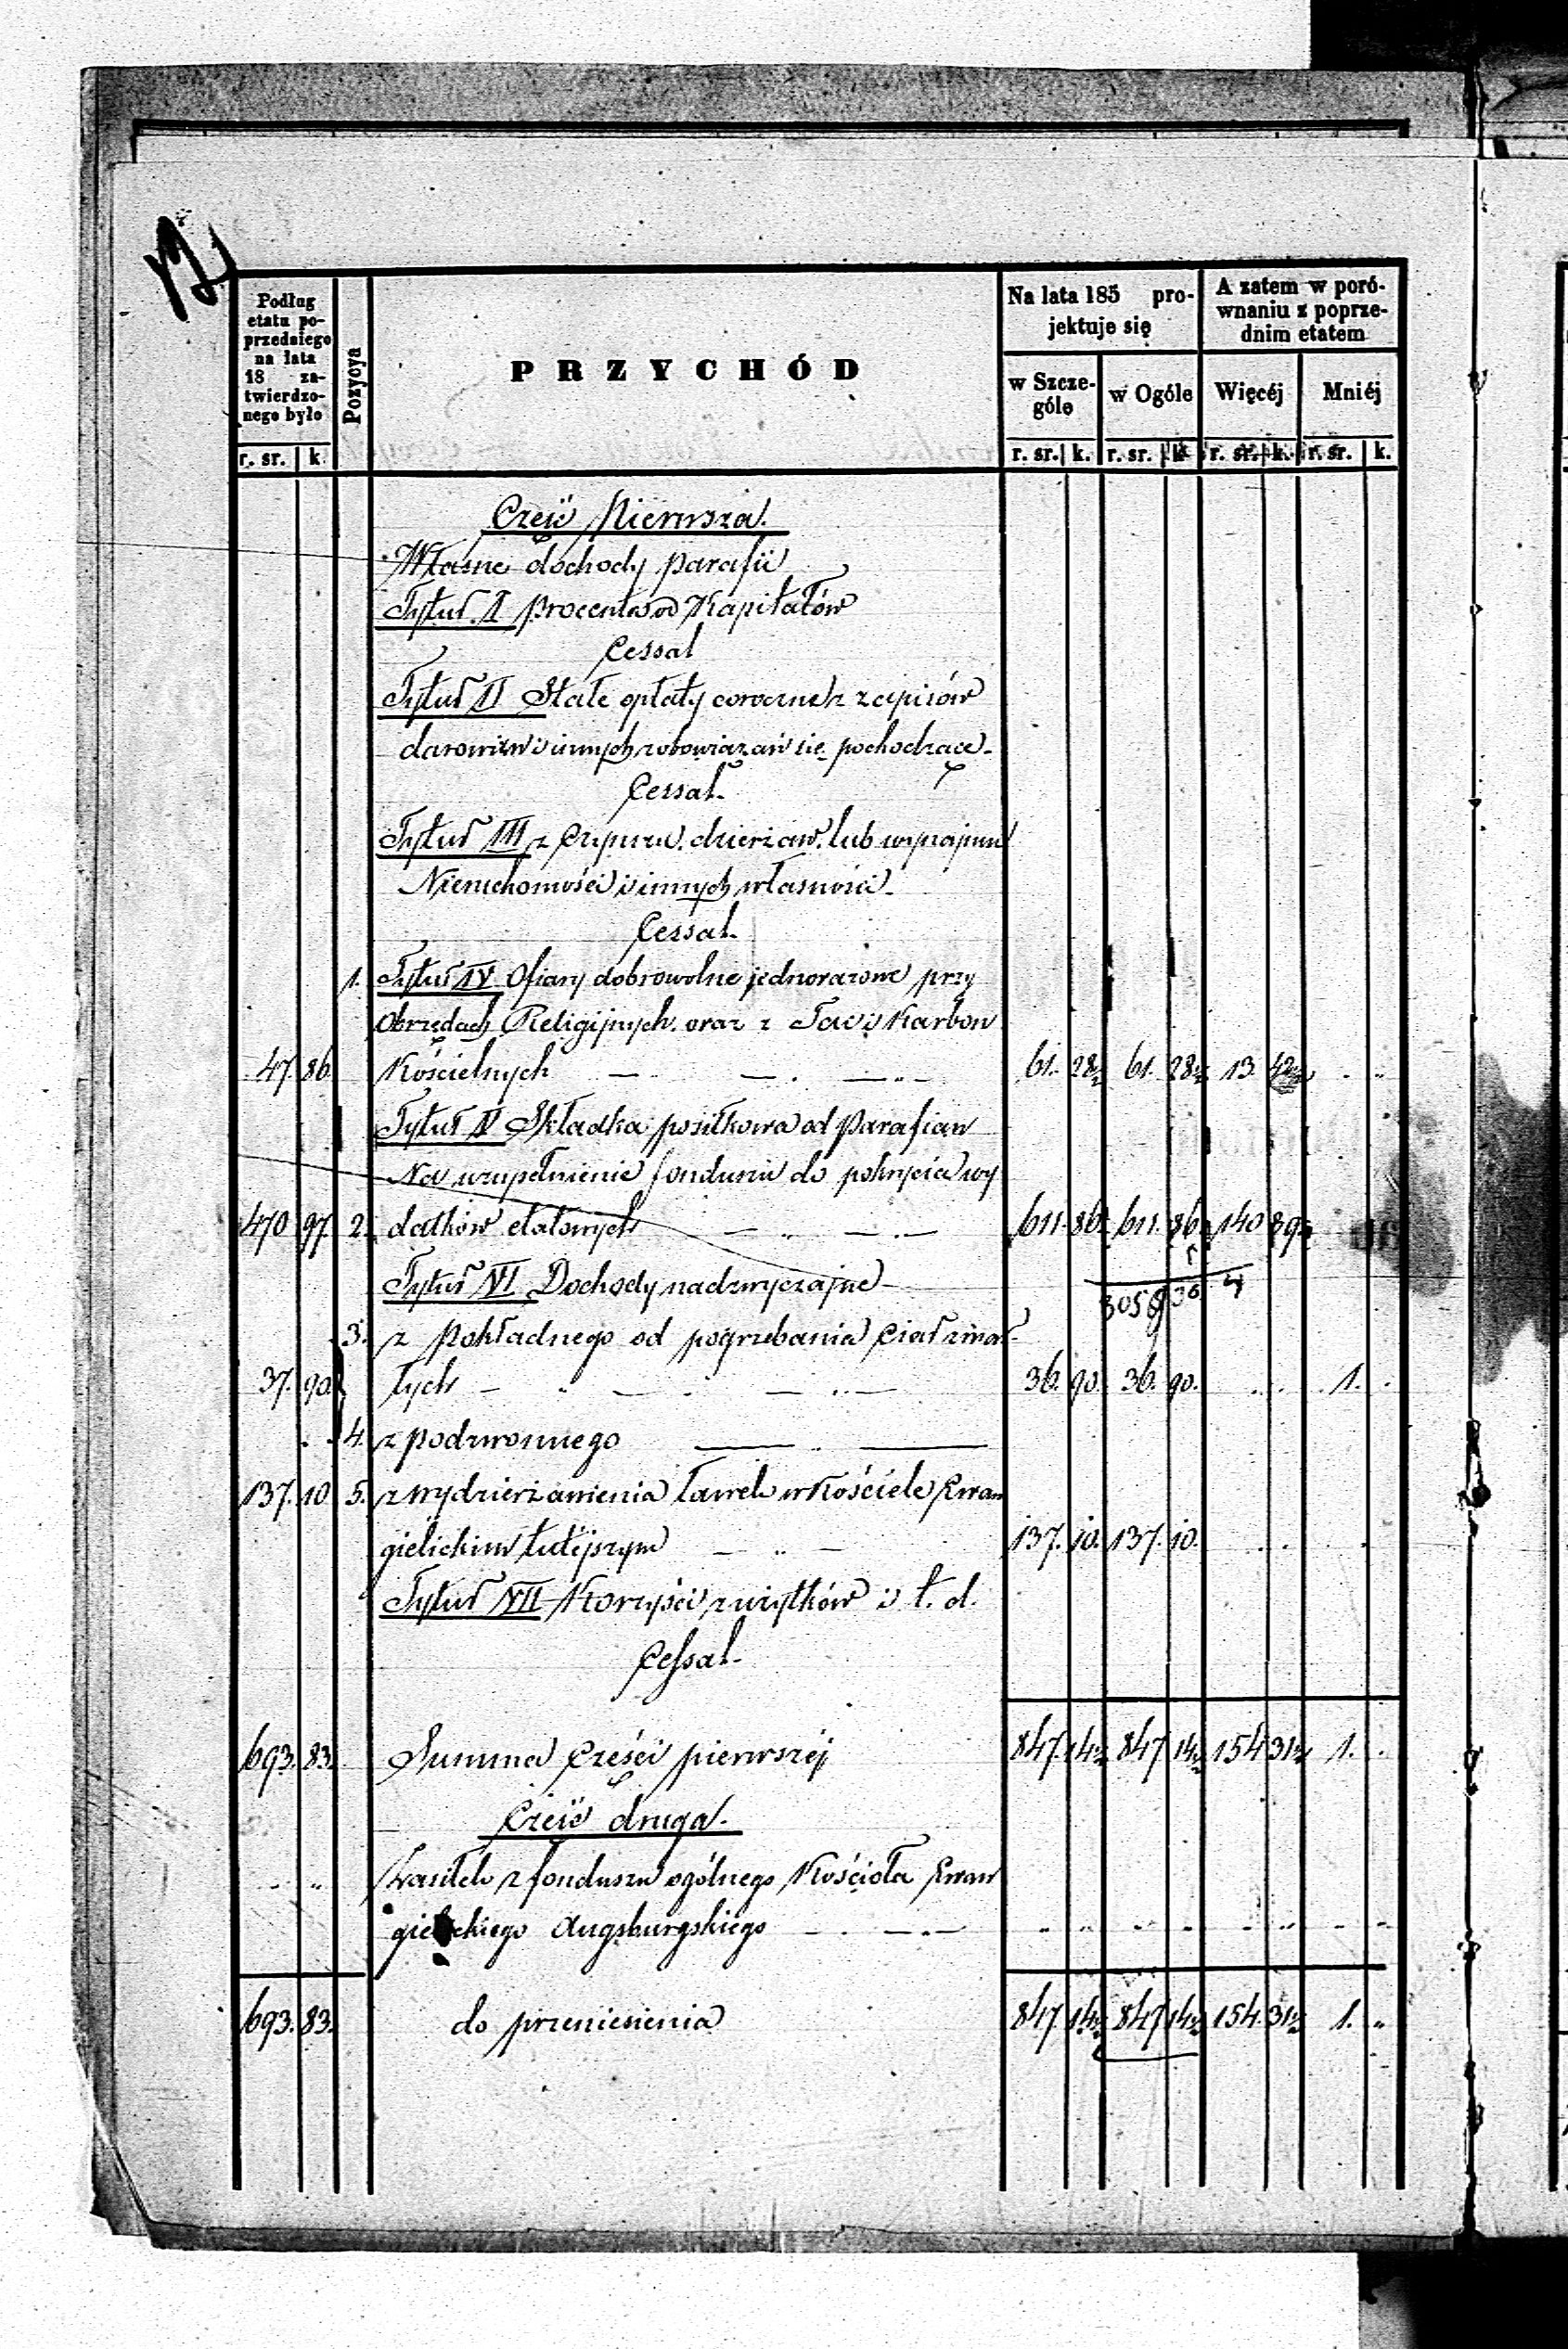 12
Podług etatu poprzedniego na lata 18 zatwierdzonego było
Pozycya
PRZYCHÓD
Na lata 185 projektuje się
A zatem w porównaniu z poprzednim etatem
w Szczególe w Ogóle Więcéj Mniéj
r. sr. k. r. sr. k. r. sr. k. r. sr. k. r. sr. k.
Część Pierwsza.
Własne dochody parafii
Tytuł I procenta od Kapitałów
Cessat
Tytuł II Stałe opłaty coroczne z zapisów
darowizn i innych zobowiązań się pochodzące.
Cessat.
Tytuł III z Czynszu, dzierżaw, lub wynajmu
Nieruchomości i innych własności.
Cessat.
1. Tytuł IV Ofiary dobrowolne jednorazowe przy
Obrzędach Religijnych oraz z Tac i Karbon
47. 86 Kościelnych 61. 28½ 61. 28½ 13. 42½
Tytuł V Składka posiłkowa od Parafian
Na uzupełnienie funduszu do pokrycia wy
470 97. 2. datków etatowych 611. 86. 611. 86. 140 89.
Tytuł VI Dochody nadzwyczajne
3. z Pokładnego od pogrzebania Ciał zmar
37. 90. łych 36. 90. 36. 90. 1.
4. z podzwonnego
137. 10 5. z wydzierżawienia ławek w Kościele Ewan
gielickim tutejszym 137. 10. 137. 10.
Tytuł VII Korzyści z użytków i t. d.
Cessat.
693. 83. Summa Części pierwszéj 847. 14½ 847 14½ 154 31½ 1.
Część druga.
Zasiłek z funduszu ogólnego Kościoła Ewan
gielickiego Augsburgskiego
693. 83. do przeniesienia 847 14½ 847 14½ 154. 31½ 1. "